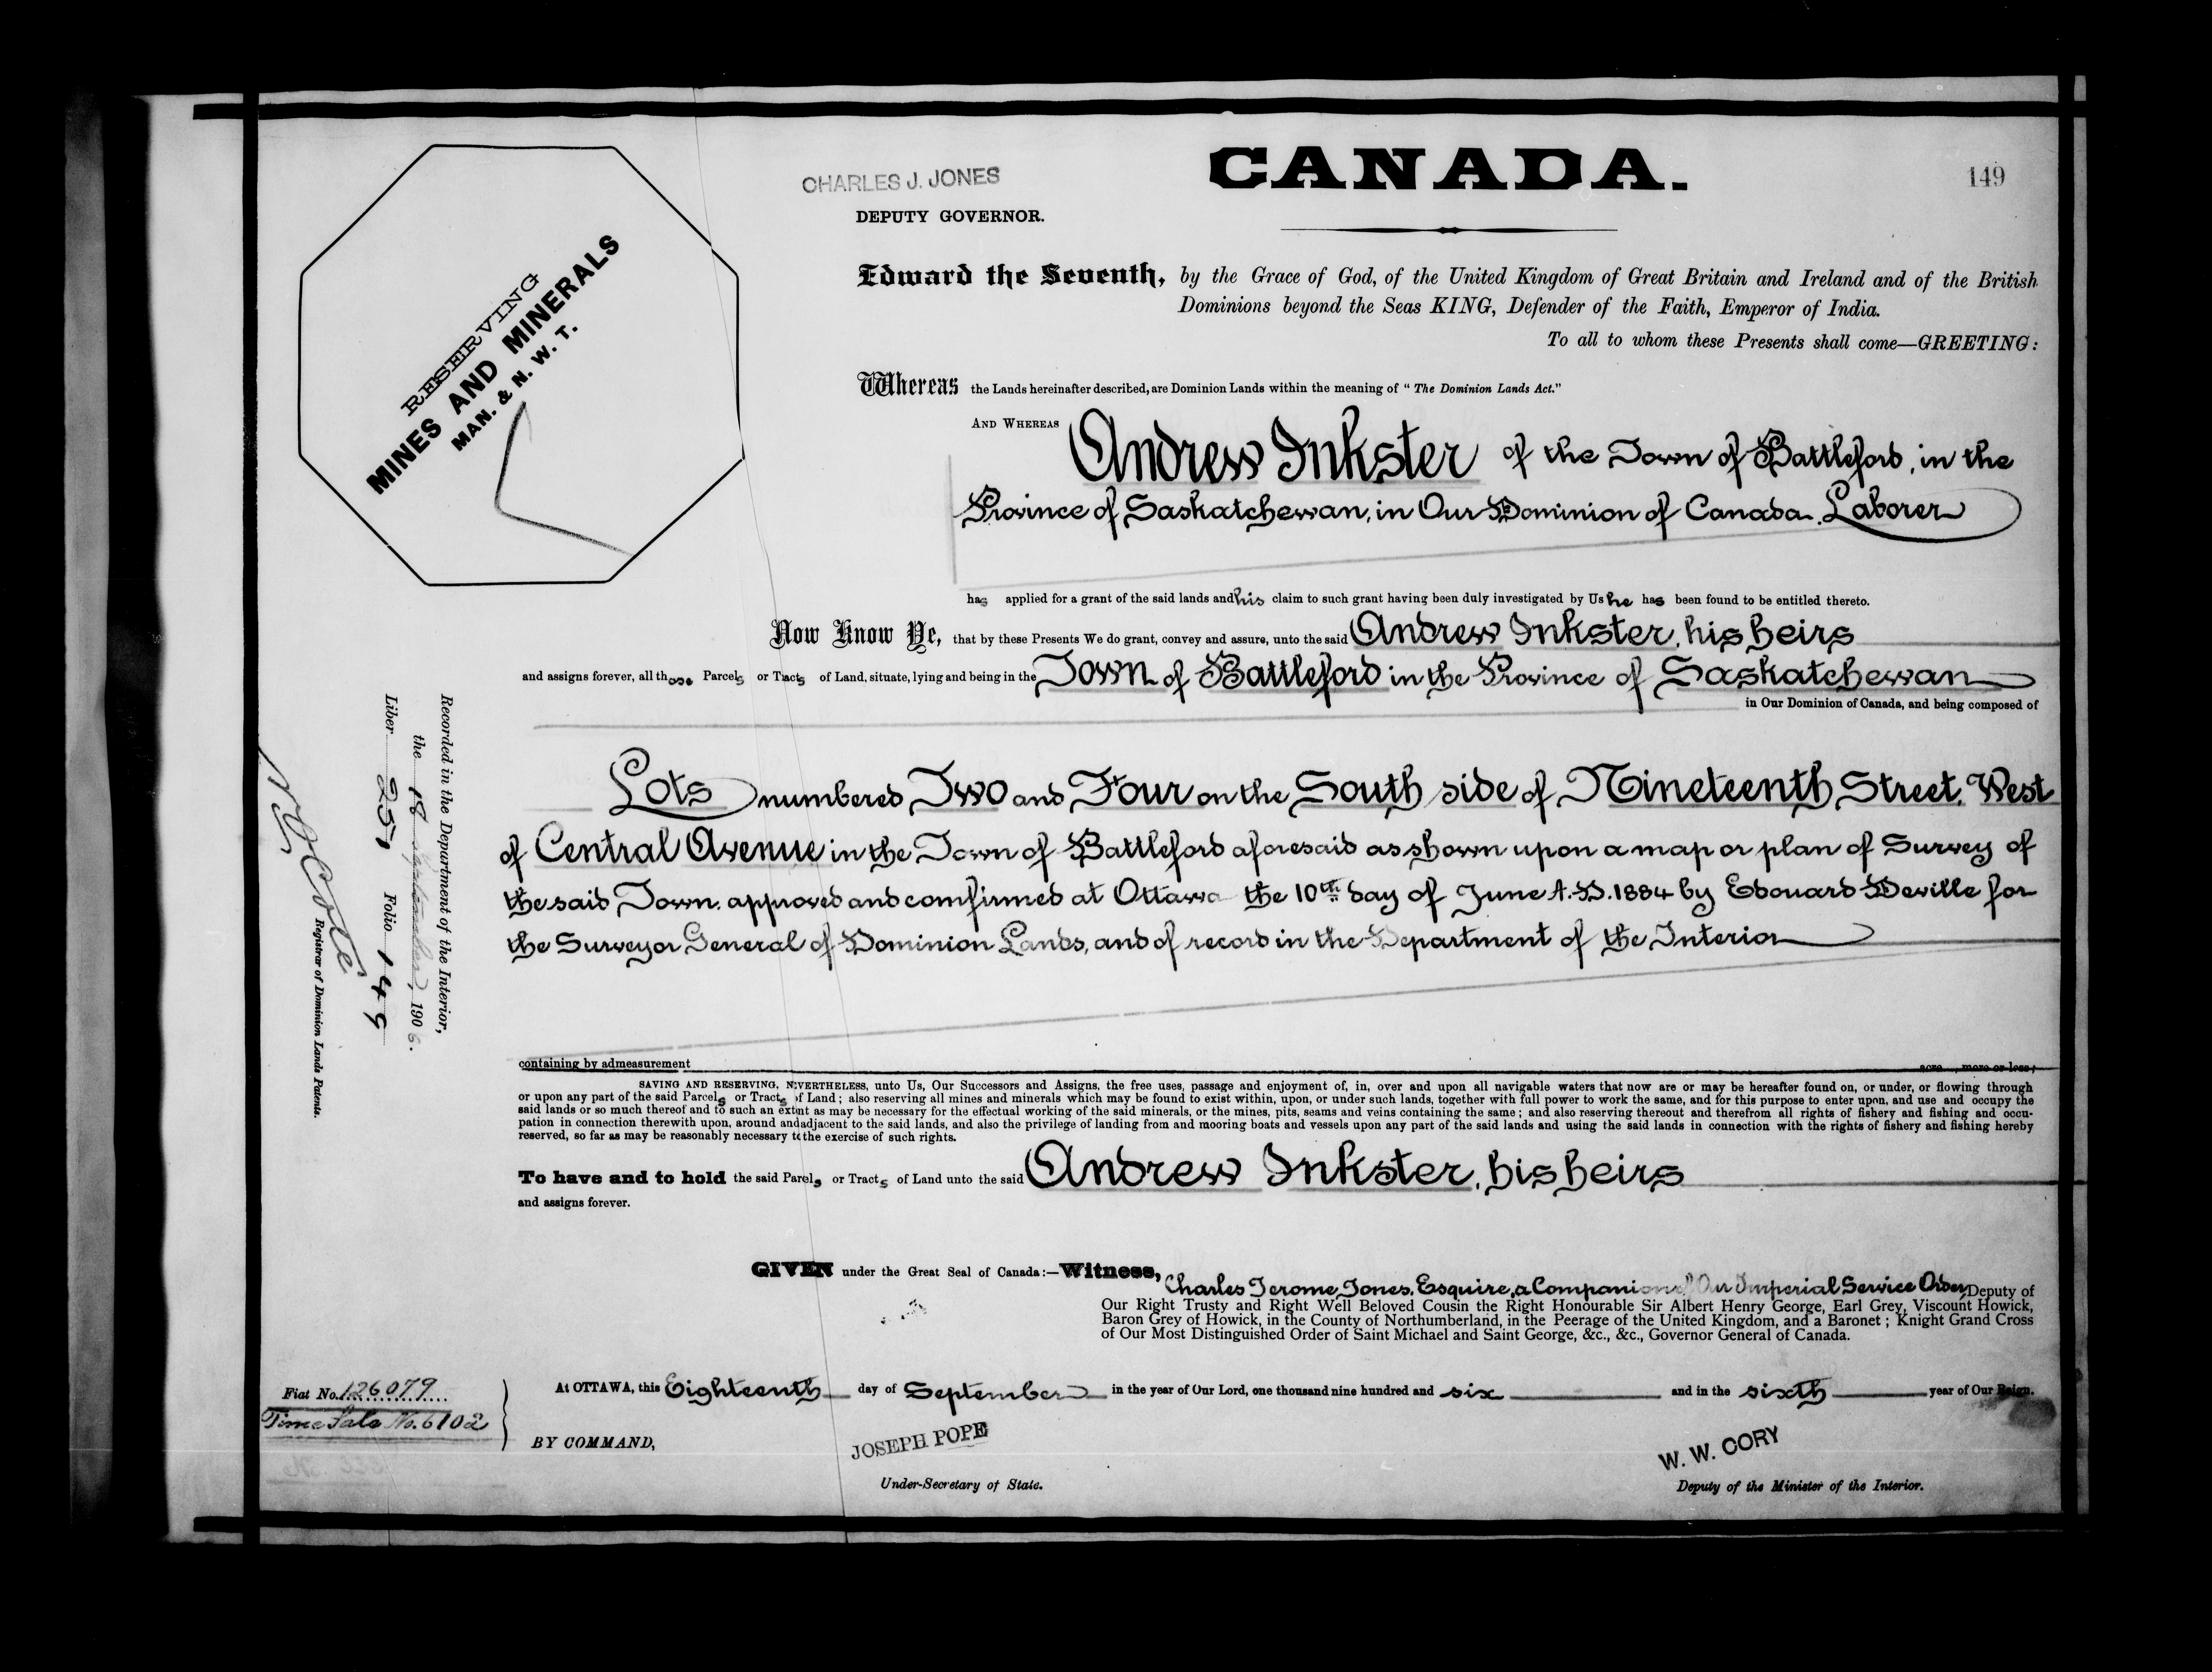 CANADA.
149
CHARLES J. JONES
DEPUTY GOVERNOR.
RESERVING
MINES AND MINERALS
MAN. & N. W. T.
Edward the Seventh, by the Grace of God, of the United Kingdom of Great Britain and Ireland and of the British
Dominions beyond the Seas KING, Defender of the Faith, Emperor of India.
To all to whom these Presents shall come—GREETING:
Whereas the Lands hereinafter described, are Dominion Lands within the meaning of "The Dominion Lands Act."
AND WHEREAS Andrew Inkster of the Town of Battleford, in the
Province of Saskatchewan, in Our Dominion of Canada, Laborer
has applied for a grant of the said lands and his claim to such grant having been duly investigated by Us he has been found to be entitled thereto.
Now Know Ye, that by these Presents We do grant, convey and assure, unto the said Andrew Inkster, his heirs
and assigns forever, all those Parcels or Tracts of Land, situate, lying and being in the Town of Battleford in the Province of Saskatchewan
in Our Dominion of Canada, and being composed of
Lots numbered Two and Four on the South side of Nineteenth Street, West
of Central Avenue in the Town of Battleford aforesaid as shown upon a map or plan of Survey of
the said Town, approved and comfirmed at Ottawa the 10th day of June A.D. 1884 by Edouard Deville for
the Surveyor General of Dominion Lands, and of record in the Department of the Interior
containing by admeasurement acre , more or less;
SAVING AND RESERVING, NEVERTHELESS, unto Us, Our Successors and Assigns, the free uses, passage and enjoyment of, in, over and upon all navigable waters that now are or may be hereafter found on, or under, or flowing through
or upon any part of the said Parcels or Tracts of Land; also reserving all mines and minerals which may be found to exist within, upon, or under such lands, together with full power to work the same, and for this purpose to enter upon, and use and occupy the
said lands or so much thereof and to such an extent as may be necessary for the effectual working of the said minerals, or the mines, pits, seams and veins containing the same; and also reserving thereout and therefrom all rights of fishery and fishing and occu-
pation in connection therewith upon, around and adjacent to the said lands, and also the privilege of landing from and mooring boats and vessels upon any part of the said lands and using the said lands in connection with the rights of fishery and fishing hereby
reserved, so far as may be reasonably necessary to the exercise of such rights.
To have and to hold the said Parcels or Tracts of Land unto the said Andrew Inkster, his heirs
and assigns forever.
GIVEN under the Great Seal of Canada:—Witness,
Charles Jerome Jones, Esquire, a Companion of Our Imperial Service Order, Deputy of
Our Right Trusty and Right Well Beloved Cousin the Right Honourable Sir Albert Henry George, Earl Grey, Viscount Howick,
Baron Grey of Howick, in the County of Northumberland, in the Peerage of the United Kingdom, and a Baronet; Knight Grand Cross
of Our Most Distinguished Order of Saint Michael and Saint George, &c., &c., Governor General of Canada.
At OTTAWA, this Eighteenth day of September in the year of Our Lord, one thousand nine hundred and six and in the sixth year of Our Reign.
BY COMMAND,
JOSEPH POPE
Under-Secretary of State.
W. W. CORY
Deputy of the Minister of the Interior.
Fiat No. 126079
Time Sale No. 6102
Recorded in the Department of the Interior,
the 18 September, 1906.
Liber 251 Folio 149
Côté
Registrar of Dominion Lands Patents.